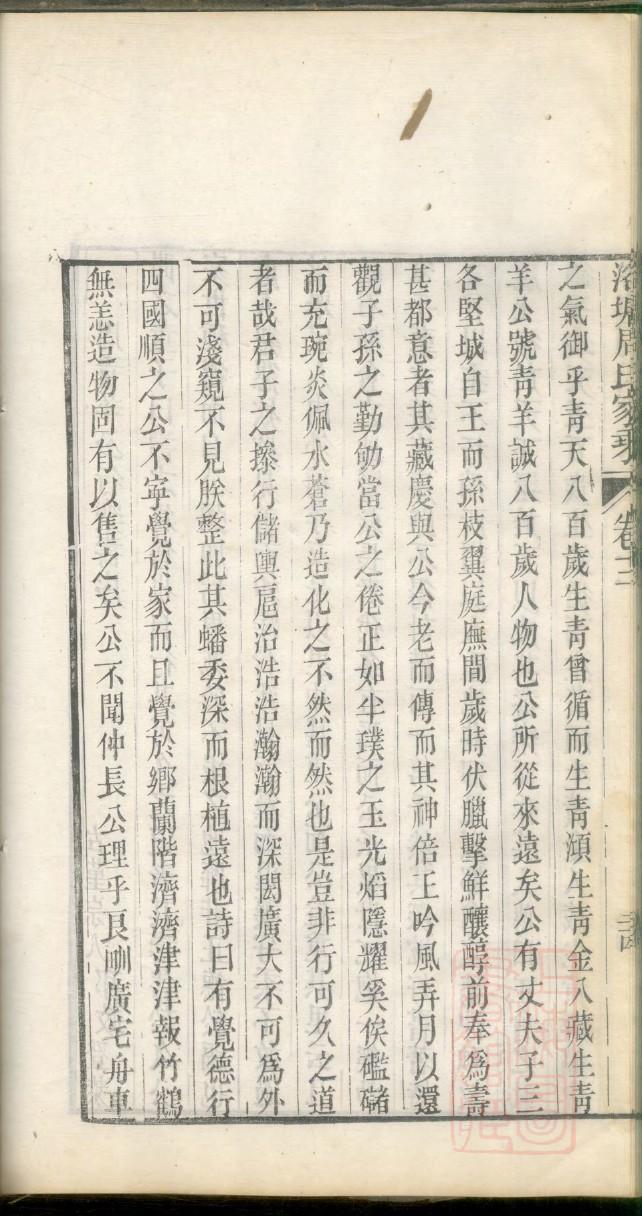 洛塘周氏家乘 卷十二 三四
之氣御乎青天八百歲生青曾循而生青澒生青金入藏生青
羊公號青羊誠八百歲人物也公所從來遠矣公有丈夫子三
各堅城自王而孫枝翼庭廡間歲時伏臘擊鮮釀醇前奉爲壽
甚都意者其藏慶與公今老而傳而其神倍王吟風弄月以還
觀子孫之勤劬當公之倦正如半璞之玉光焰隱耀奚俟礛䃴
而充琬炎佩水蒼乃造化之不然而然也是豈非行可久之道
者哉君子之摻行儲輿扈治浩浩瀚瀚而深閎廣大不可爲外
不可淺窺不見朕整此其蟠委深而根植遠也詩曰有覺德行
四國順之公不寧覺於家而且覺於鄉蘭階濟濟津津報竹鶴
無恙造物固有以售之矣公不聞仲長公理乎良甽廣宅舟車